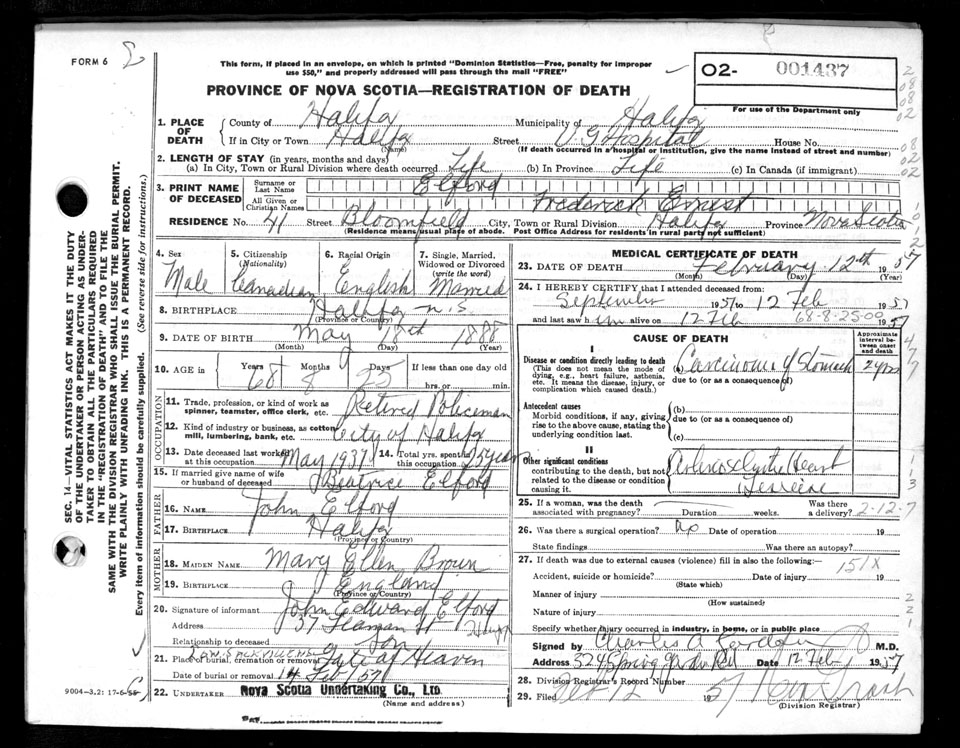 FORM 6
This form, if placed in an envelope, on which is printed "Dominion Statistics—Free, penalty for improper
use $50," and properly addressed will pass through the mail "FREE"
02- 001437
For use of the Department only
PROVINCE OF NOVA SCOTIA—REGISTRATION OF DEATH
1. PLACE OF DEATH
County of Halifax Municipality of Halifax
If in City or Town Halifax Street V. G Hospital House No.
(Name) (If death occurred in a hospital or institution, give the name instead of street and number)
2. LENGTH OF STAY (in years, months and days)
(a) In City, Town or Rural Division where death occurred Life (b) In Province Life (c) In Canada (if immigrant)
3. PRINT NAME OF DECEASED
Surname or Last Name Elford
All Given or Christian Names Frederick Ernest
RESIDENCE No. 41 Street Bloomfield City, Town or Rural Division Halifax Province Nova Scotia
(Residence means usual place of abode. Post Office Address for residents in rural parts not sufficient)
4. Sex Male
5. Citizenship (Nationality) Canadian
6. Racial Origin English
7. Single, Married, Widowed or Divorced (write the word) Married
8. BIRTHPLACE Halifax N.S.
(Province or Country)
9. DATE OF BIRTH May 18th 1888
(Month) (Day) (Year)
10. AGE in Years 68 Months 8 Days 25 If less than one day
hrs. or min.
OCCUPATION
11. Trade, profession, or kind of work as
spinner, teamster, office clerk, etc. Retired Policeman
12. Kind of industry or business, as cotton
mill, lumbering, bank, etc. City of Halifax
13. Date deceased last worked
at this occupation May 1937
14. Total yrs. spent
this occupation years
15. If married give name of wife
or husband of deceased Beatrice Elford
FATHER
16. Name John Elford
17. Birthplace Halifax
(Province or Country)
MOTHER
18. MAIDEN NAME Mary Ellen Brown
19. Birthplace England
(Province or Country)
20. Signature of informant John Edward Elford
Address 37 Seaman St Halifax
Relationship to deceased Son
LOW. SACKVILLE NS
21. Place of burial, cremation or removal Gate of Heaven
Date of burial or removal 14 Feb/57
22. UNDERTAKER Nova Scotia Undertaking Co., Ltd.
(Name and address)
9004-3.2: 17-6-55
MEDICAL CERTIFICATE OF DEATH
23. DATE OF DEATH February 12th 1957
(Month) (Day) (Year)
24. I HEREBY CERTIFY that I attended deceased from:
September 1957 to 12 Feb 1957
and last saw him alive on 12 Feb 1957
68-8-25-00
CAUSE OF DEATH
Approximate interval between onset and death
I
Disease or condition directly leading to death
(This does not mean the mode of
dying, e.g., heart failure, asthenia,
etc. It means the disease, injury, or
complication which caused death.)
(a) Carcinoma of Stomach 2 yrs
due to (or as a consequence of)
Antecedent causes
Morbid conditions, if any, giving
rise to the above cause, stating the
underlying condition last.
(b)
due to (or as a consequence of)
(c)
II
Other significant conditions
contributing to the death, but not
related to the disease or condition
causing it.
Arteriosclerotic Heart
Disease
25. If a woman, was the death
associated with pregnancy? Duration weeks. Was there
a delivery?
2-12-7
26. Was there a surgical operation? No Date of operation 19
State findings Was there an autopsy?
27. If death was due to external causes (violence) fill in also the following:
151X
Accident, suicide or homicide? Date of injury 19
(State which)
Manner of injury
(How sustained)
Nature of injury
Specify whether injury occurred in industry, in home, or in public place
Signed by Charles A. Gordon M.D.
Address 324 Spring Garden Rd Date 12 Feb 1957
28. Division Registrar's Record Number
29. Filed Feb 12 1957
(Division Registrar)
SEC. 14—VITAL STATISTICS ACT MAKES IT THE DUTY
OF THE UNDERTAKER OR PERSON ACTING AS UNDER-
TAKER TO OBTAIN ALL THE PARTICULARS REQUIRED
IN THE "REGISTRATION OF DEATH" AND TO FILE THE
SAME WITH THE DIVISION REGISTRAR WHO SHALL ISSUE THE BURIAL PERMIT.
WRITE PLAINLY WITH UNFADING INK. THIS IS A PERMANENT RECORD.
Every item of information should be carefully supplied. (See reverse side for instructions.)